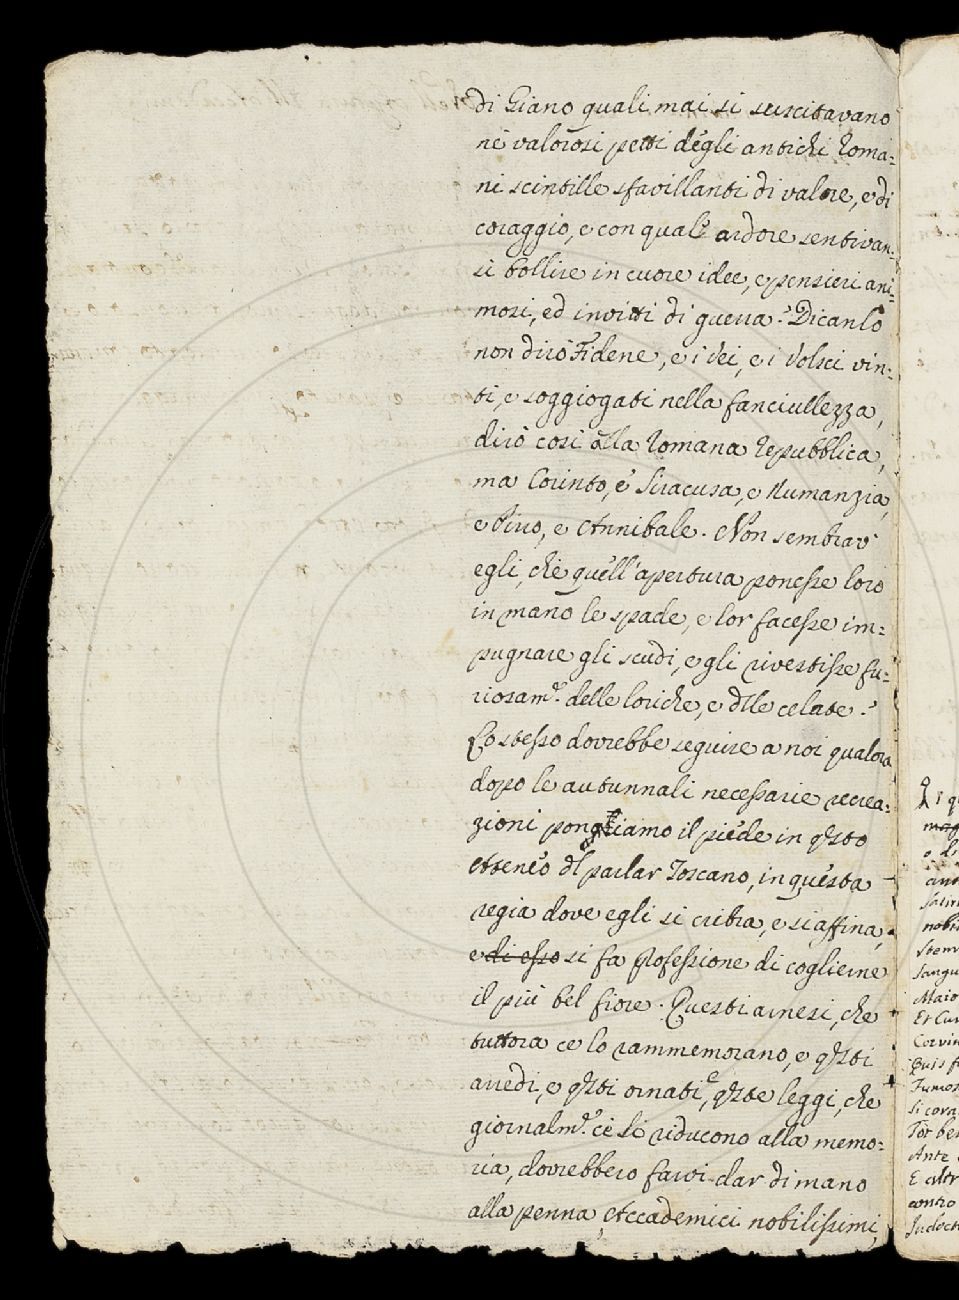 di Giano quali mai si suscitavano
ne valorosi petti degli antichi Roma=
ni scintille sfavillanti di valore, e di
coraggio, e con quale ardore sentivan=
si bollire in cuore idee, e pensieri ani=
mosi, ed invitti di guerra? Dicanlo
non dirò Fidene, e i Vei, e i Volsci vin=
ti, e soggiogati nella fanciullezza,
dirò cosi alla Romana Repubblica,
ma Corinto, e Siracusa, e Numanzia,
e Pirro, e Annibale. Non sembrav
egli, che quell'apertura ponesse loro
in mano le spade, e lor facesse im=
pugnare gli scudi, e gli rivestisse fu=
riosam.e delle loriche, e dlle celate?
Lo stesso dovrebbe seguire a noi qualora
dopo le autunnali necessarie recrea=
zioni ponghiamo il piede in qsto
Ateneo dl parlar Toscano, in questa
regia dove egli si cribra, e si affina,
e di esso si fa professione di coglierne
il più bel fiore. Questi arnesi, che
tuttora ce lo rammemorano, e qsti
arredi, e qsti ornati, e qste leggi, che
giornalm.e ce li riducono alla memo=
ria, dovrebbero farvi dar di mano
alla penna, Accademici nobilissimi,
Sangu
Maio
Et Cur
Corvin
Quis f
Fumos
Si cora
Tor be
Ante
E altr
contro